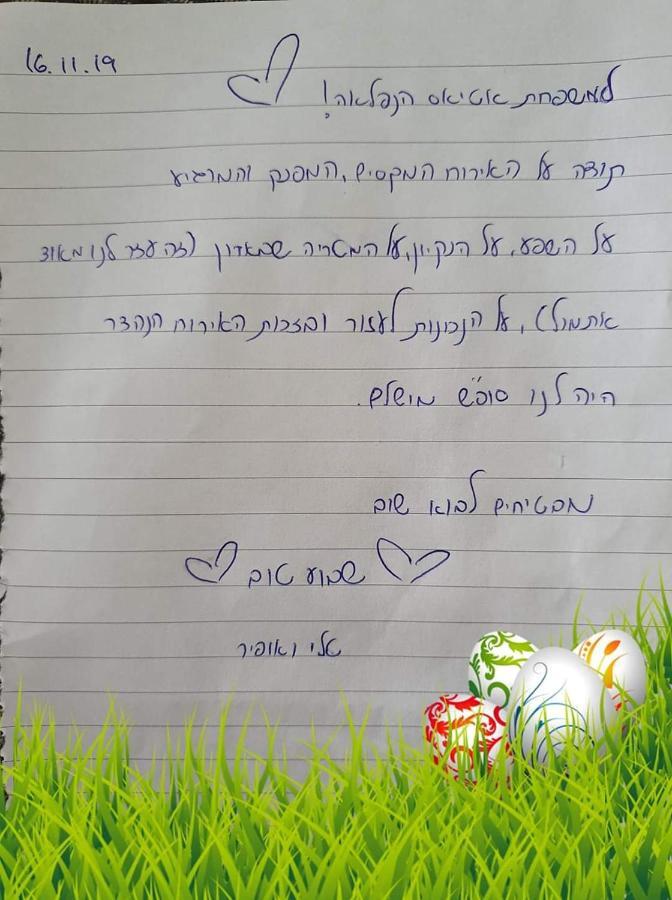 16.11.19
למשפחת אטיאס הנפלאה!
תודה על האירוח המקסים, המפנק והמרגיע
על השפע, על הנקיון, על המטריה שבארון (זה עזר לנו מאוד
אתמול), על הנכונות לעזור ובזכות האירוח הנהדר
היה לנו סופ"ש מושלם.
מבטיחים לבוא שוב
שבוע טוב
אלי ואופיר